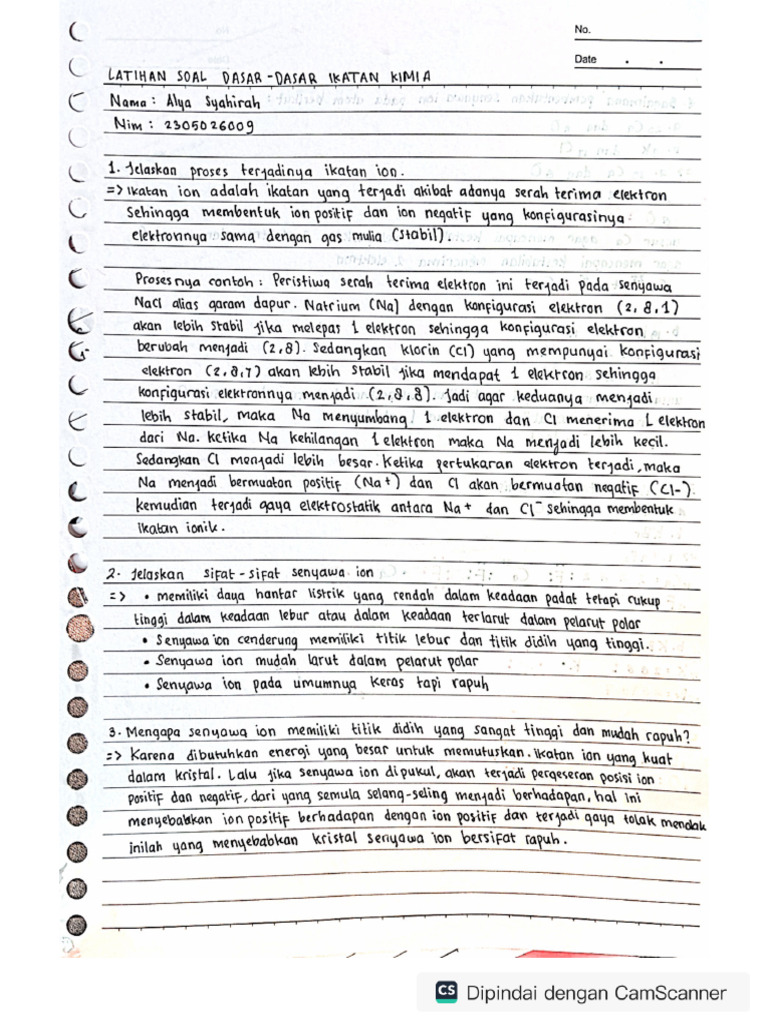 No.
Date . .
LATIHAN SOAL DASAR-DASAR IKATAN KIMIA
Nama : Alya Syahirah
Nim : 2305026009
1. Jelaskan proses terjadinya ikatan ion.
=> Ikatan ion adalah ikatan yang terjadi akibat adanya serah terima elektron
Sehingga membentuk ion positif dan ion negatif yang konfigurasinya
elektronnya sama dengan gas mulia (Stabil).
Prosesnya contoh : Peristiwa serah terima elektron ini terjadi pada senyawa
NaCl alias garam dapur. Natrium (Na) dengan konfigurasi elektron (2,8,1)
akan lebih stabil jika melepas 1 elektron sehingga konfigurasi elektron
berubah menjadi (2,8). Sedangkan klorin (Cl) yang mempunyai konfigurasi
elektron (2,8,7) akan lebih stabil jika mendapat 1 elektron sehingga
konfigurasi elektronnya menjadi (2,8,8). Jadi agar keduanya menjadi
lebih stabil, maka Na menyumbang 1 elektron dan Cl menerima 1 elektron
dari Na. Ketika Na kehilangan 1 elektron maka Na menjadi lebih kecil.
Sedangkan Cl menjadi lebih besar. Ketika pertukaran elektron terjadi, maka
Na menjadi bermuatan positif (Na+) dan Cl akan bermuatan negatif (Cl-)
kemudian terjadi gaya elektrostatik antara Na+ dan Cl- sehingga membentuk
ikatan ionik.
2. Jelaskan sifat-sifat senyawa ion
=> • memiliki daya hantar listrik yang rendah dalam keadaan padat tetapi cukup
tinggi dalam keadaan lebur atau dalam keadaan terlarut dalam pelarut polar
• Senyawa ion cenderung memiliki titik lebur dan titik didih yang tinggi.
• Senyawa ion mudah larut dalam pelarut polar
• Senyawa ion pada umumnya keras tapi rapuh
3. Mengapa senyawa ion memiliki titik didih yang sangat tinggi dan mudah rapuh?
=> Karena dibutuhkan energi yang besar untuk memutuskan ikatan ion yang kuat
dalam kristal. Lalu jika senyawa ion dipukul, akan terjadi pergeseran posisi ion
positif dan negatif, dari yang semula selang-seling menjadi berhadapan, hal ini
menyebabkan ion positif berhadapan dengan ion positif dan terjadi gaya tolak menolak
inilah yang menyebabkan kristal senyawa ion bersifat rapuh.
CS Dipindai dengan CamScanner